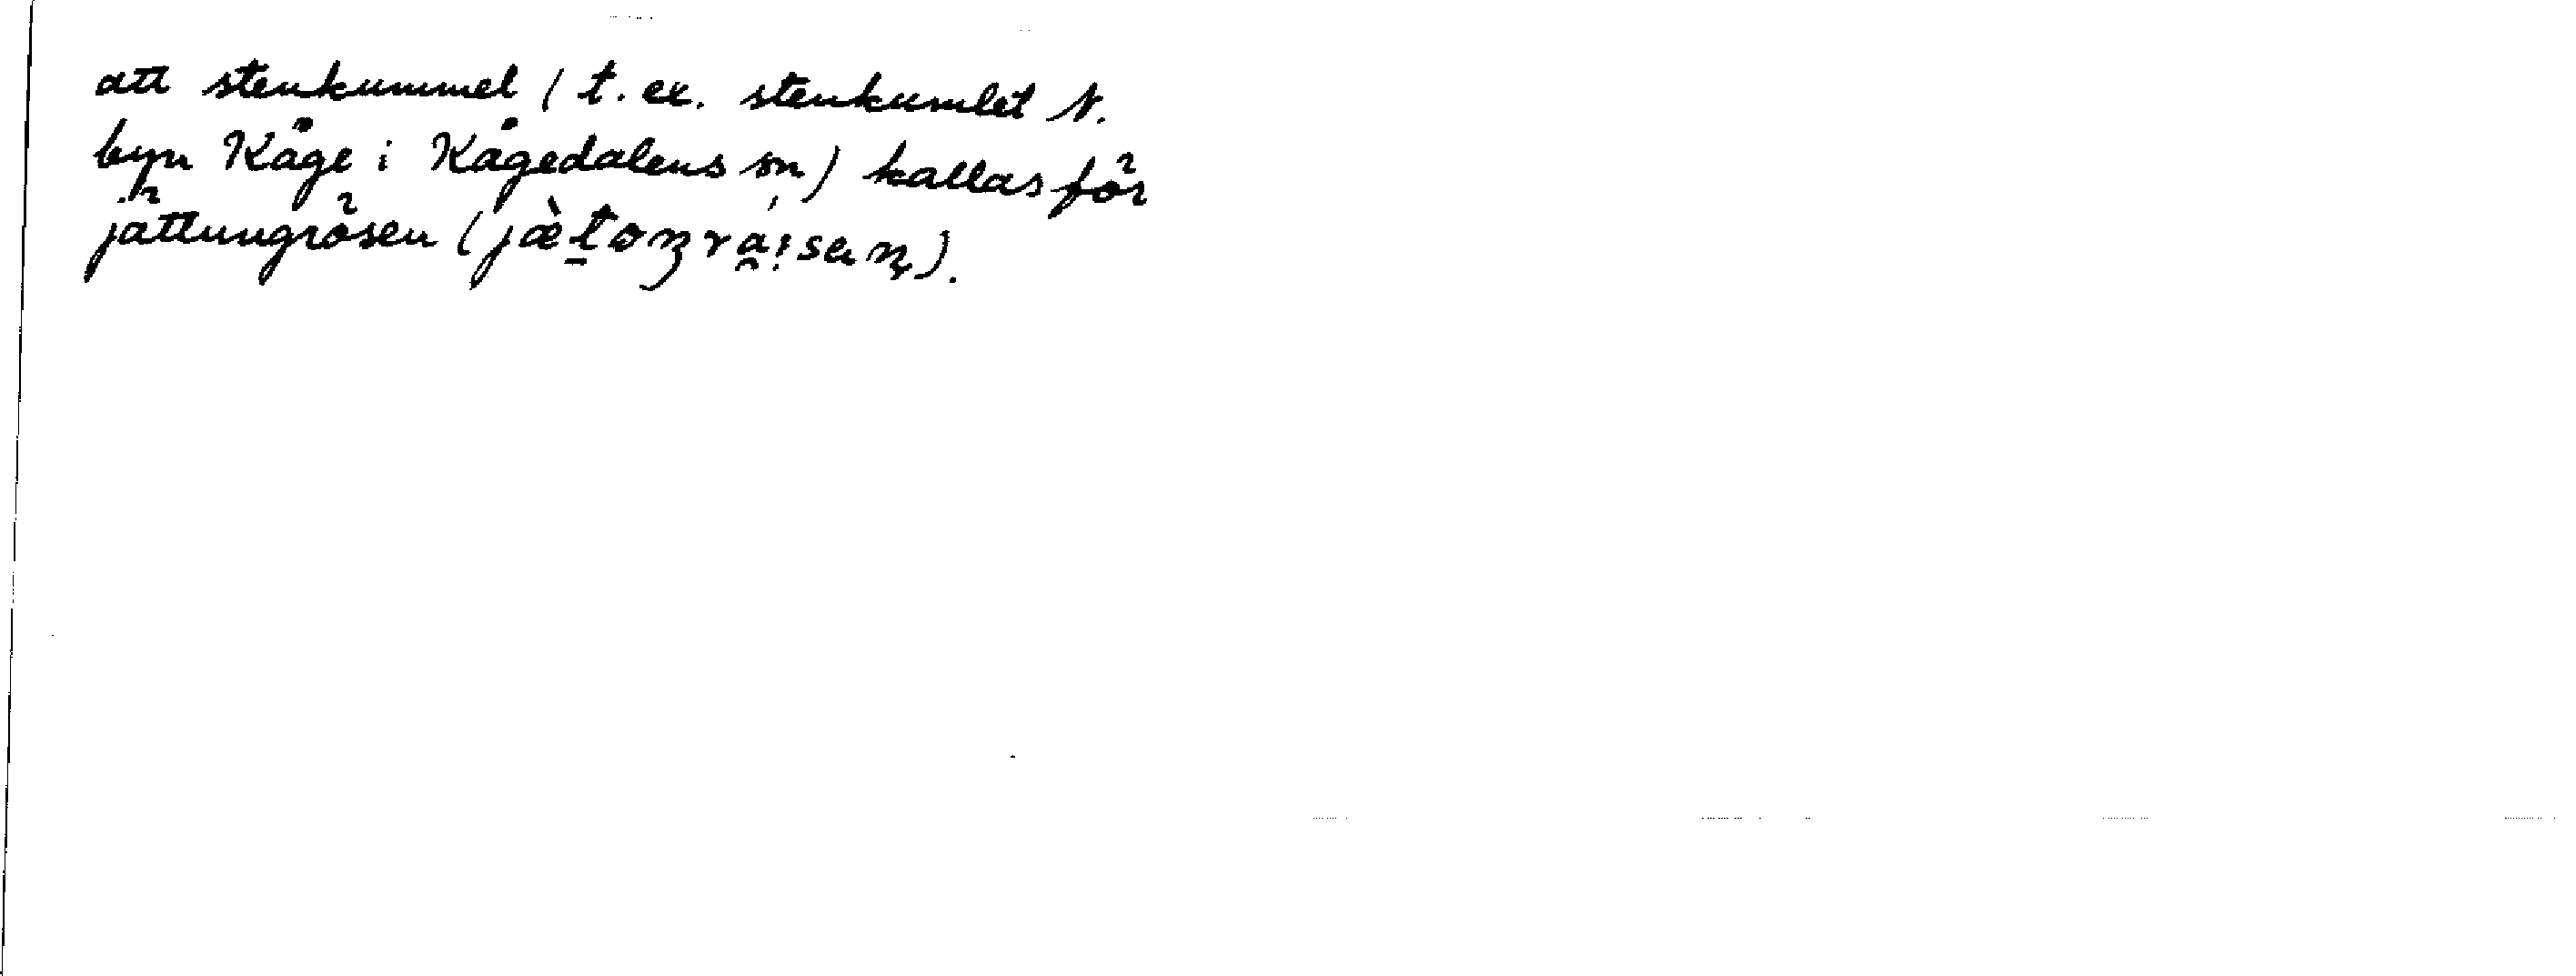 att stenkummel (t. ex. stenkumlet N.
byn Kåge i Kågedalens sn) kallas för
jättungrösen (jæ̀toŋra̯i̩sen̥).